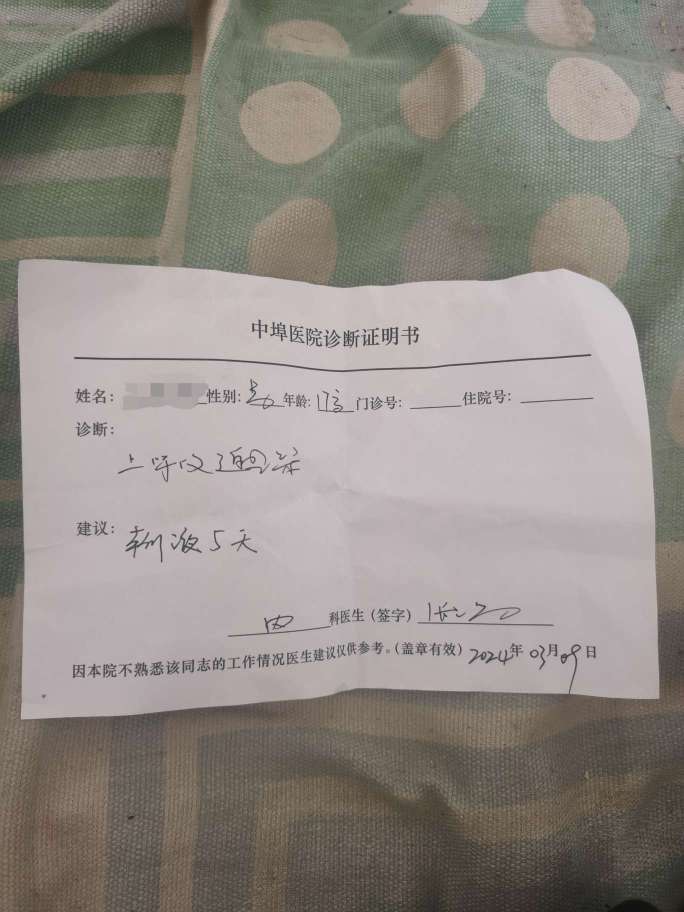 中埠医院诊断证明书
姓名: 性别: 年龄: 门诊号: 住院号:
诊断:
上呼吸道感染
建议: 输液5天
内 科医生（签字）
因本院不熟悉该同志的工作情况医生建议仅供参考。（盖章有效）2024年03月09日